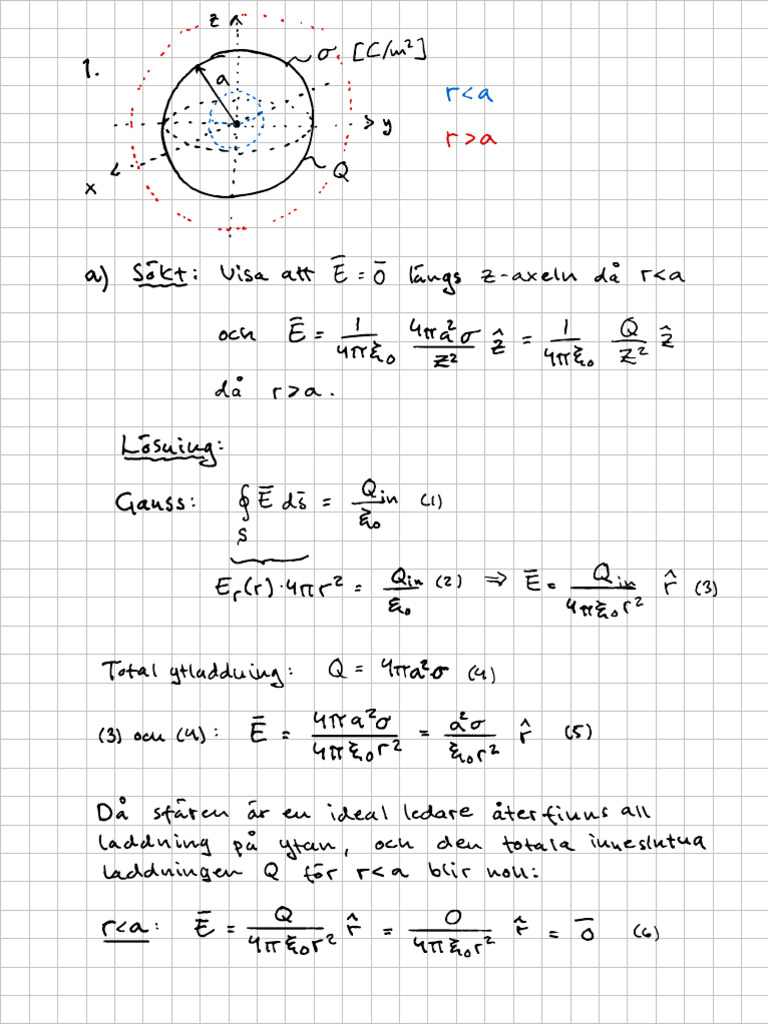 1.
z
a
σ [C/m²]
y
x
Q
r<a
r>a
a) Sökt: Visa att Ē = 0̄ längs z-axeln då r<a
och Ē = 1/(4πξ₀) 4πa²σ/z² ẑ = 1/(4πξ₀) Q/z² ẑ
då r>a.
Lösning:
Gauss: ∮_S Ē ds̄ = Q_in/ξ₀ (1)
E_r(r)·4πr² = Q_in/ξ₀ (2) ⇒ Ē = Q_in/(4πξ₀r²) r̂ (3)
Total ytladdning: Q = 4πa²σ (4)
(3) och (4): Ē = 4πa²σ/(4πξ₀r²) = a²σ/(ξ₀r²) r̂ (5)
Då sfären är en ideal ledare återfinns all
laddning på ytan, och den totala inneslutna
laddningen Q för r<a blir noll:
r<a: Ē = Q/(4πξ₀r²) r̂ = 0/(4πξ₀r²) r̂ = 0̄ (6)